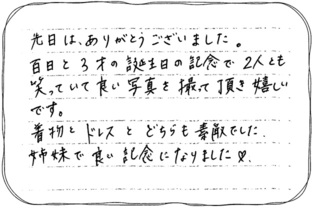 先日は、ありがとうございました。
百日と3才の誕生日の記念で2人とも
笑っていて良い写真を撮って頂き嬉しい
です。
着物とドレスとどちらも素敵でした.
姉妹で良い記念になりました♡.